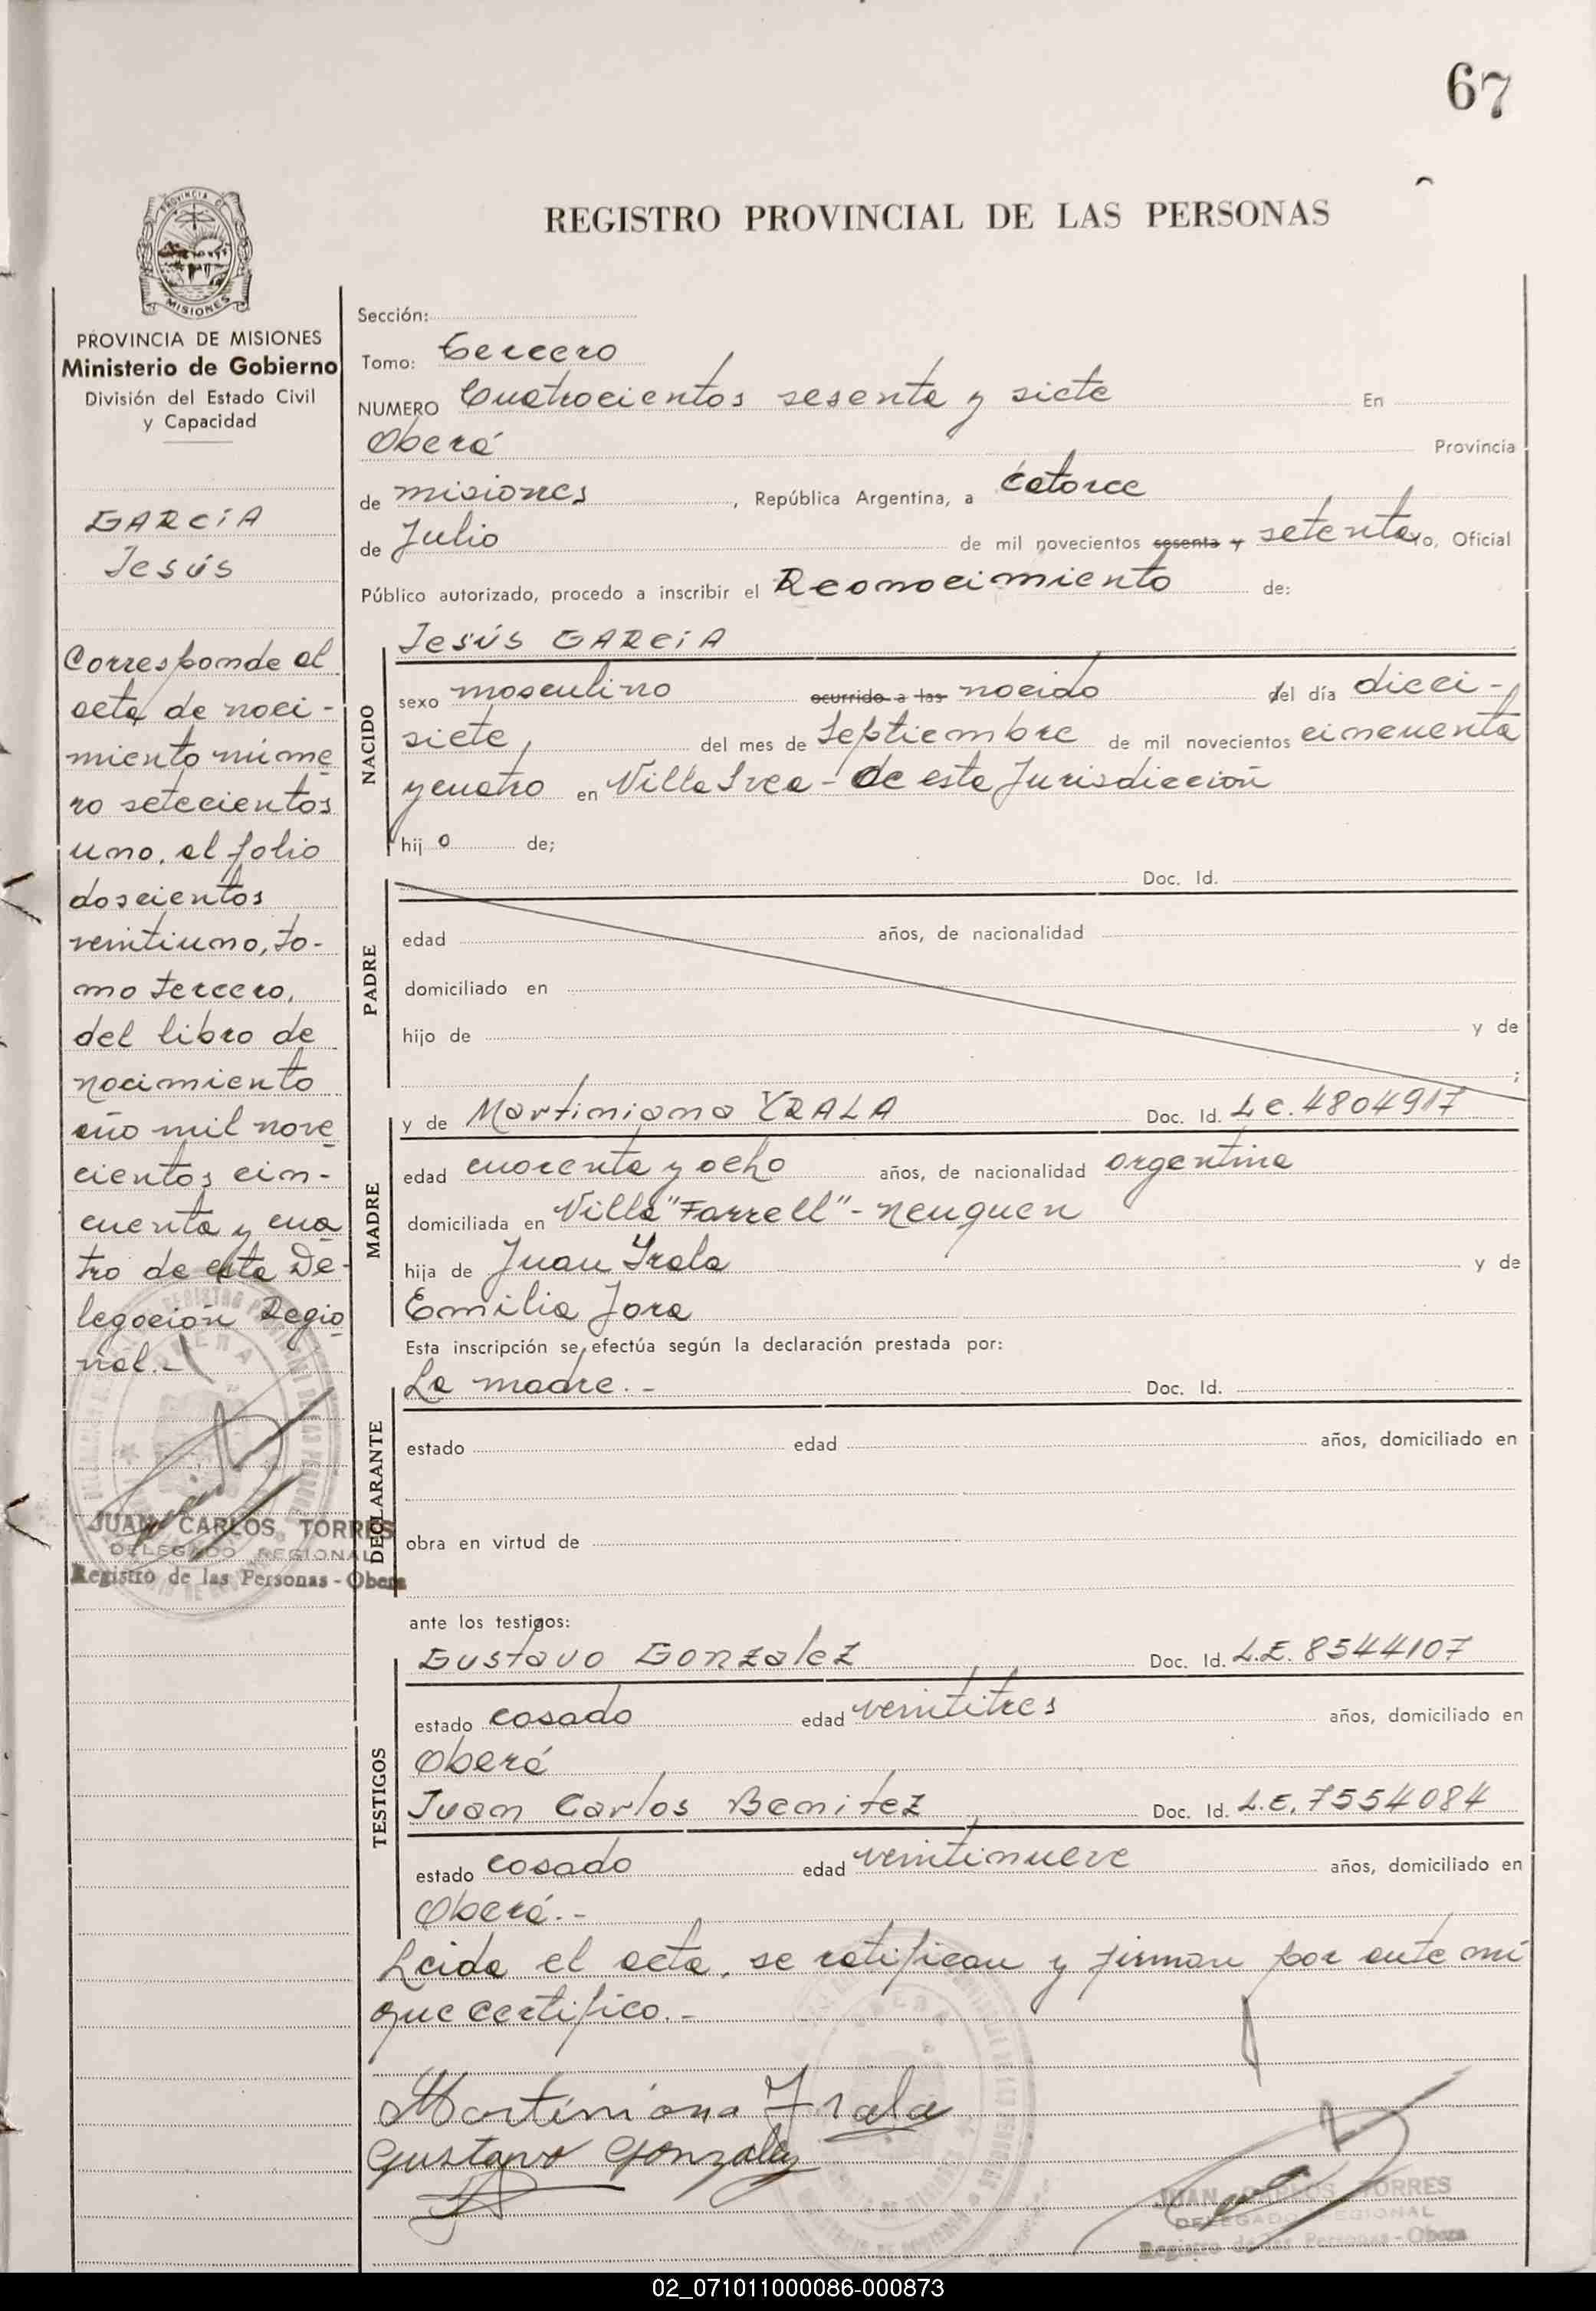 67
PROVINCIA D
MISIONES
REGISTRO PROVINCIAL DE LAS PERSONAS
PROVINCIA DE MISIONES
Ministerio de Gobierno
División del Estado Civil
y Capacidad
GARCÍA
Jesús
Corresponde al
acta de naci-
miento núme
ro setecientos
uno, al folio
doscientos
veintiuno, to-
mo tercero,
del libro de
nacimiento
año mil nove
cientos cin-
cuenta y cua
tro de esta De-
legación Regio
nal.-
JUAN CARLOS TORRES
DELEGADO REGIONAL
Registro de las Personas - Obera
Sección:
Tomo: tercero
NUMERO Cuatrocientos sesenta y siete En
Oberá Provincia
de misiones, República Argentina, a catorce
de Julio de mil novecientos sesenta y setenta Yo, Oficial
Público autorizado, procedo a inscribir el Reconocimiento de:
NACIDO
Jesús GARCÍA
sexo masculino ocurrido a las nacido del día dieci-
siete, del mes de Septiembre de mil novecientos cincuenta
y cuatro en Villa Svea - de esta Jurisdicción
hij o de;
PADRE
Doc. Id.
edad años, de nacionalidad
domiciliado en
hijo de y de
;
MADRE
y de Martiniana YRALA Doc. Id. L.C. 4804917
edad cuarenta y ocho años, de nacionalidad argentina
domiciliada en Villa "Farrell" - neuquen
hija de Juan Yrala y de
Emilia Jara
Esta inscripción se efectúa según la declaración prestada por:
DECLARANTE
La madre.- Doc. Id.
estado edad años, domiciliado en
obra en virtud de
ante los testigos:
TESTIGOS
Gustavo Gonzalez Doc. Id. L.E. 8544107
estado casado edad veintitres años, domiciliado en
Oberá
Juan Carlos Benitez Doc. Id. L.E. 7554084
estado casado edad veintinueve años, domiciliado en
Oberá.-
Leida el acta, se ratifican y firman por ante mi
que certifico.-
Martiniana Yrala
Gustavo Gonzalez
JUAN CARLOS TORRES
DELEGADO REGIONAL
Registro de las Personas - Obera
02_071011000086-000873